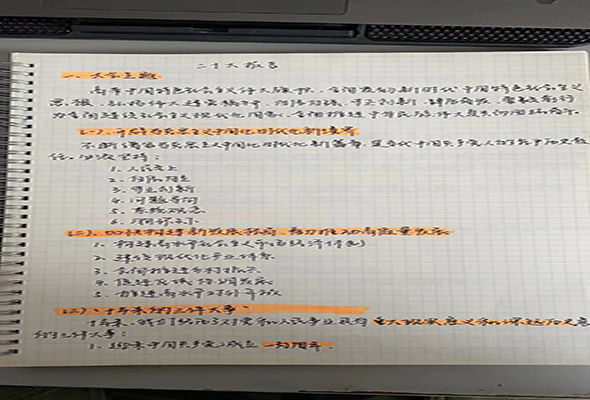 二十大报告
一、大会主题
高举中国特色社会主义伟大旗帜，全面贯彻新时代中国特色社会主义
思想，弘扬伟大建党精神，自信自强、守正创新，踔厉奋发、勇毅前行
为全面建设社会主义现代化国家、全面推进中华民族伟大复兴而团结奋斗。
(一)、开辟马克思主义中国化时代化新境界
不断谱写马克思主义中国化时代化新篇章，是当代中国共产党人的庄严历史责
任。必须坚持：
1. 人民至上
2. 自信自立
3. 守正创新
4. 问题导向
5. 系统观念
6. 胸怀天下
(二)、加快构建新发展格局，着力推动高质量发展
1. 构建高水平社会主义市场经济体制
2. 建设现代化产业体系
3. 全面推进乡村振兴
4. 促进区域协调发展
5. 推进高水平对外开放
(三)、十年来的三件大事
十年来，我们经历了对党和人民事业具有重大现实意义和深远历史意
的三件大事：
1. 迎来中国共产党成立一百周年.